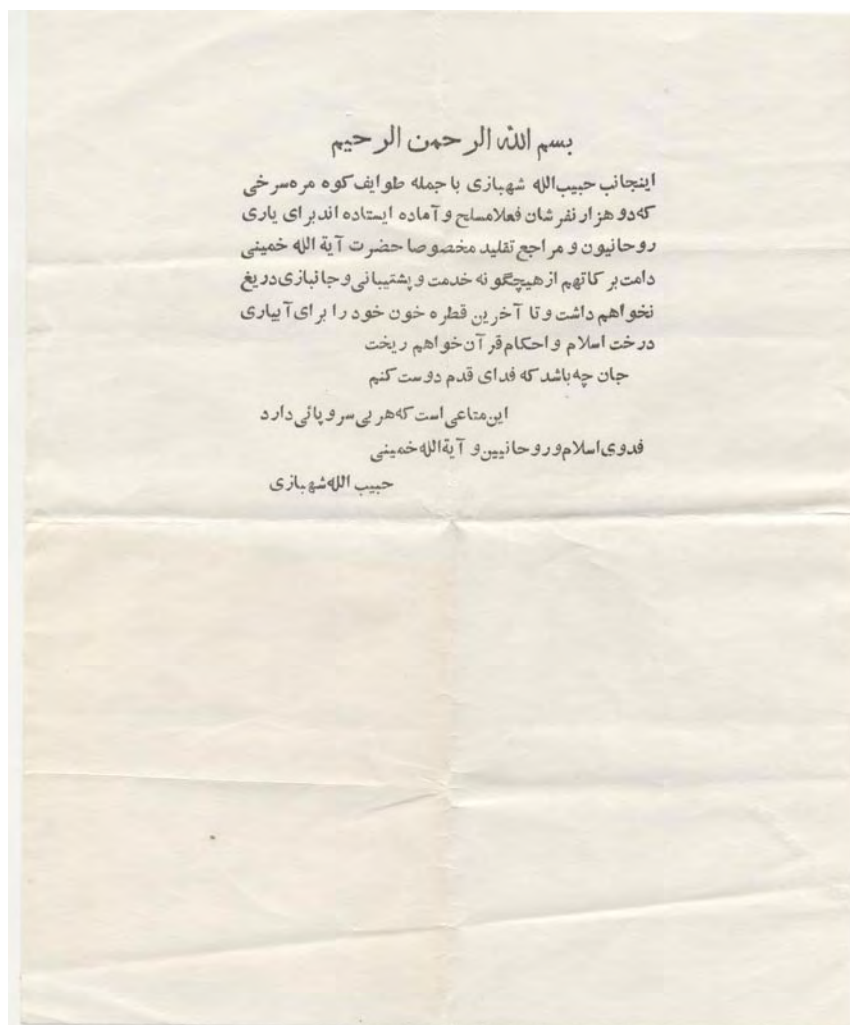 بسم الله الرحمن الرحیم
اینجانب حبیب‌الله شهبازی با جمله طوایف کوه مره سرخی
که دو هزار نفرشان فعلا مسلح و آماده ایستاده اند برای یاری
روحانیون و مراجع تقلید مخصوصا حضرت آیة الله خمینی
دامت برکاتهم از هیچگونه خدمت و پشتیبانی و جانبازی دریغ
نخواهم داشت و تا آخرین قطره خون خود را برای آبیاری
درخت اسلام و احکام قرآن خواهم ریخت
جان چه باشد که فدای قدم دوست کنم
این متاعی است که هر بی سر و پائی دارد
فدوی اسلام و روحانیین و آیة الله خمینی
حبیب الله شهبازی